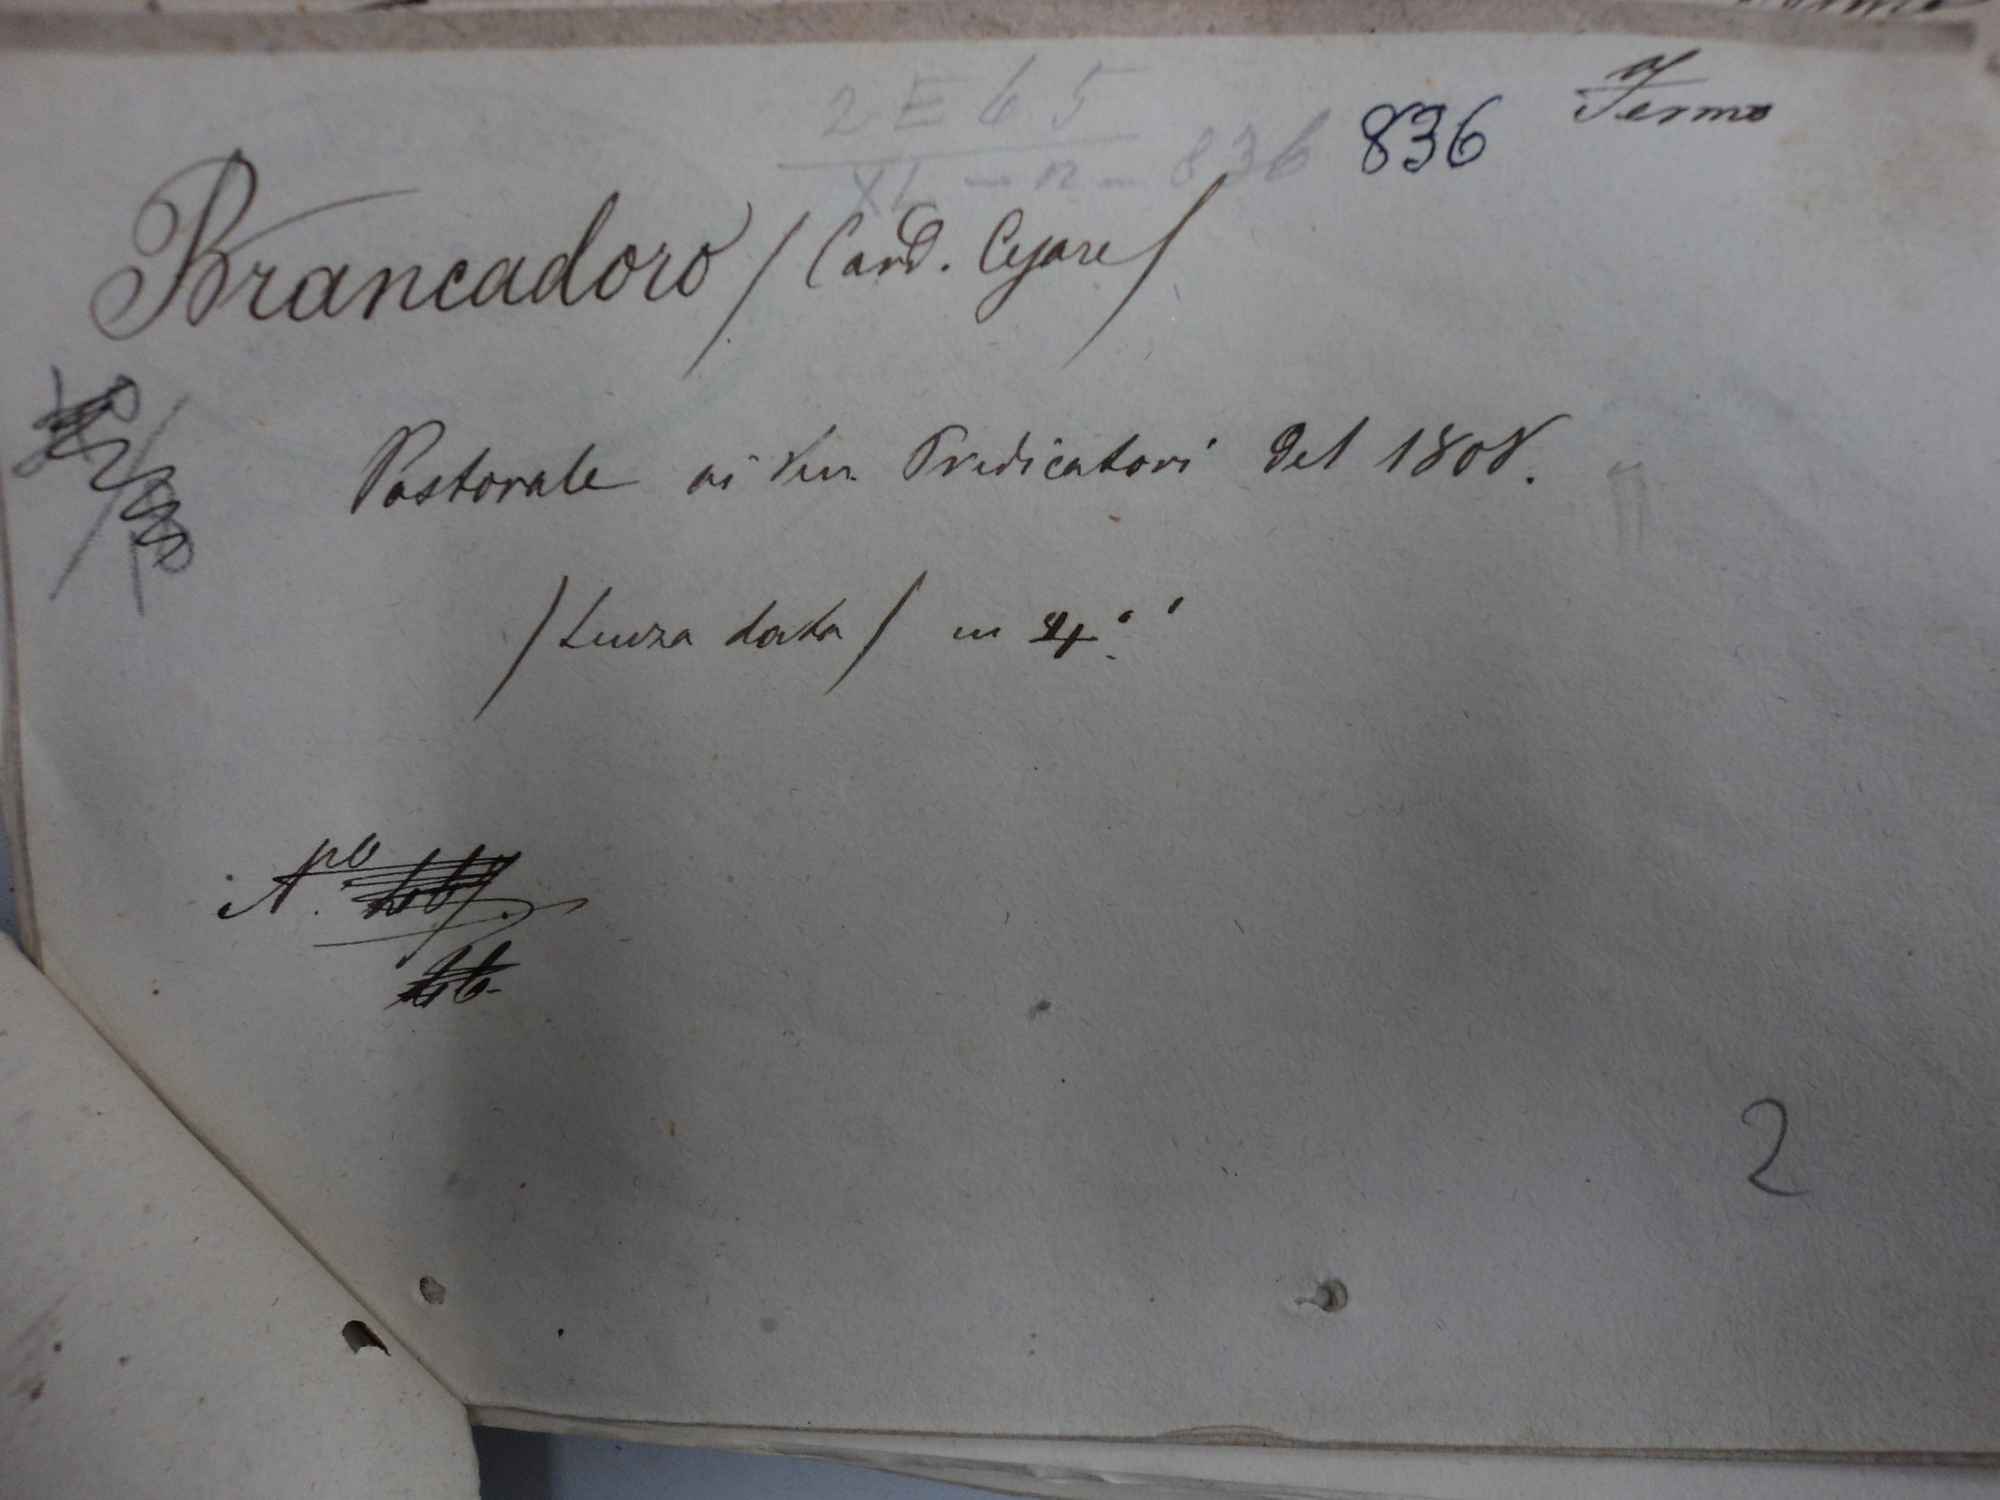 2 E 6 5
XL - n - 836
836
Fermo
Brancadoro / Card. Cesare /
Pastorale ai Ven. Predicatori del 1808.
/ Senza data / in 4.°
2